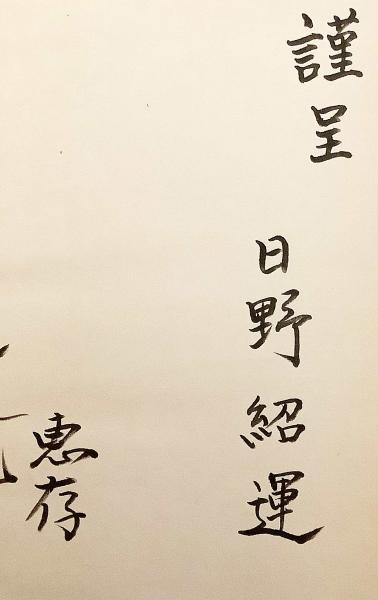 謹呈
日野紹運
惠存